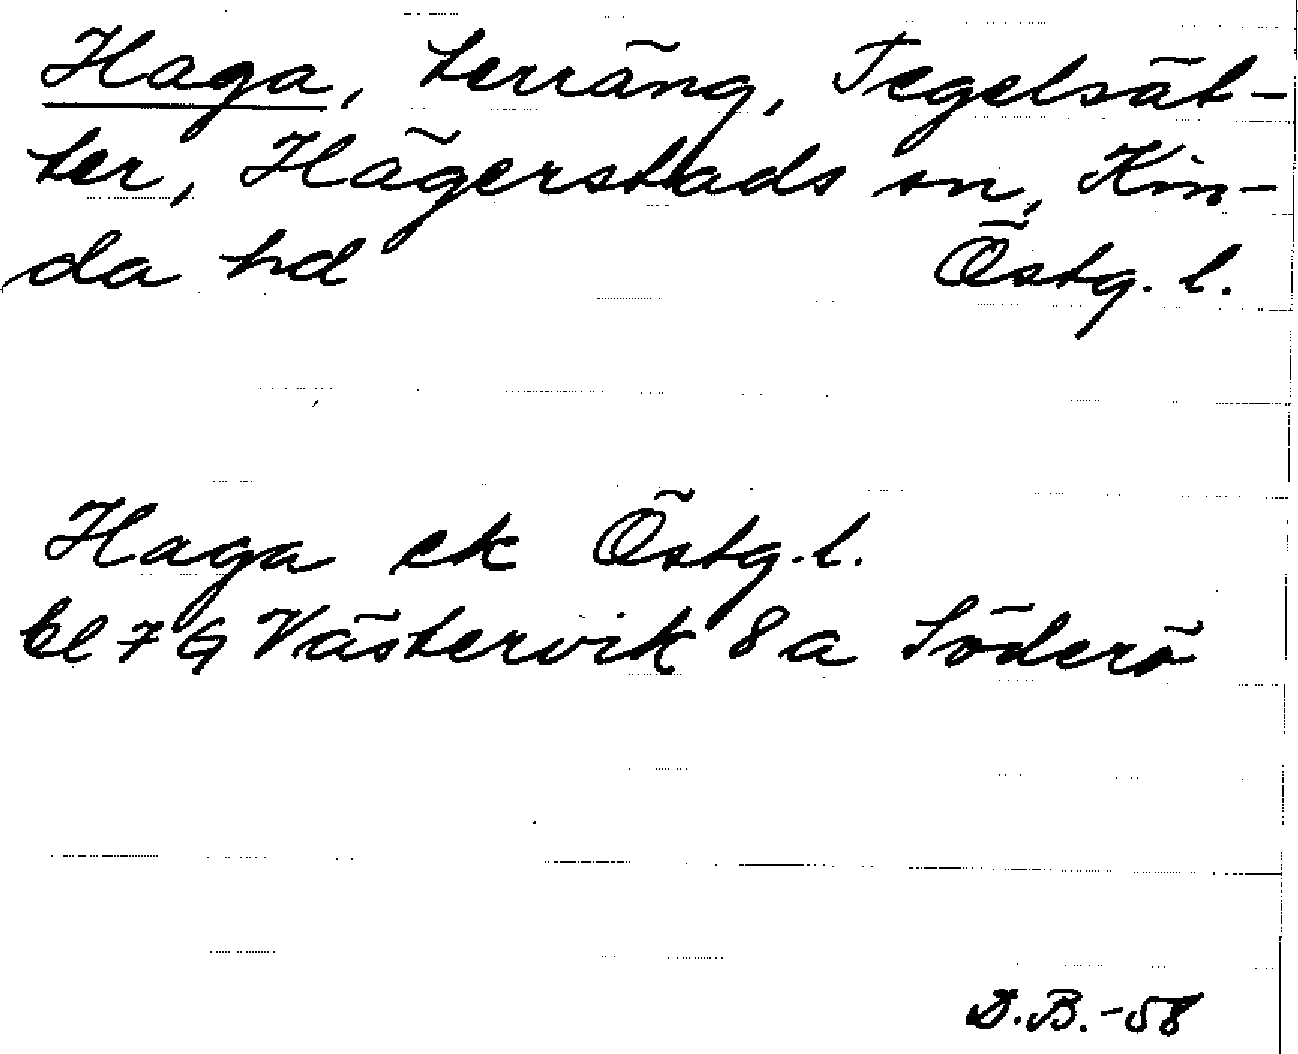 Haga, terräng, Tegelsät-
ter, Hägerstads sn, Kin-
da hd Östg. l.
Haga ek Östg. l.
bl 7 G Västervik 8 a Söderö
D.B.-58